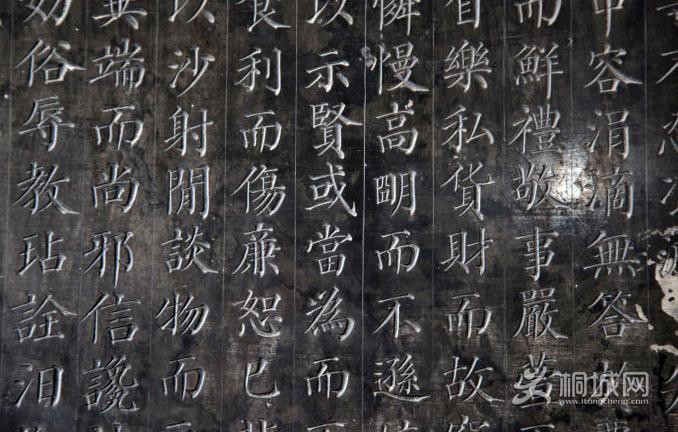 不忍
容涓滴無答
而鮮禮敬事嚴
樂私貨財而故
憐慢高明而不遜
以示賢或當為而
食利而傷廉恕己
以沙射閒談物而
異端而尚邪信讒
俗辱教玷詮汨
桐城网
www.itongcheng.com